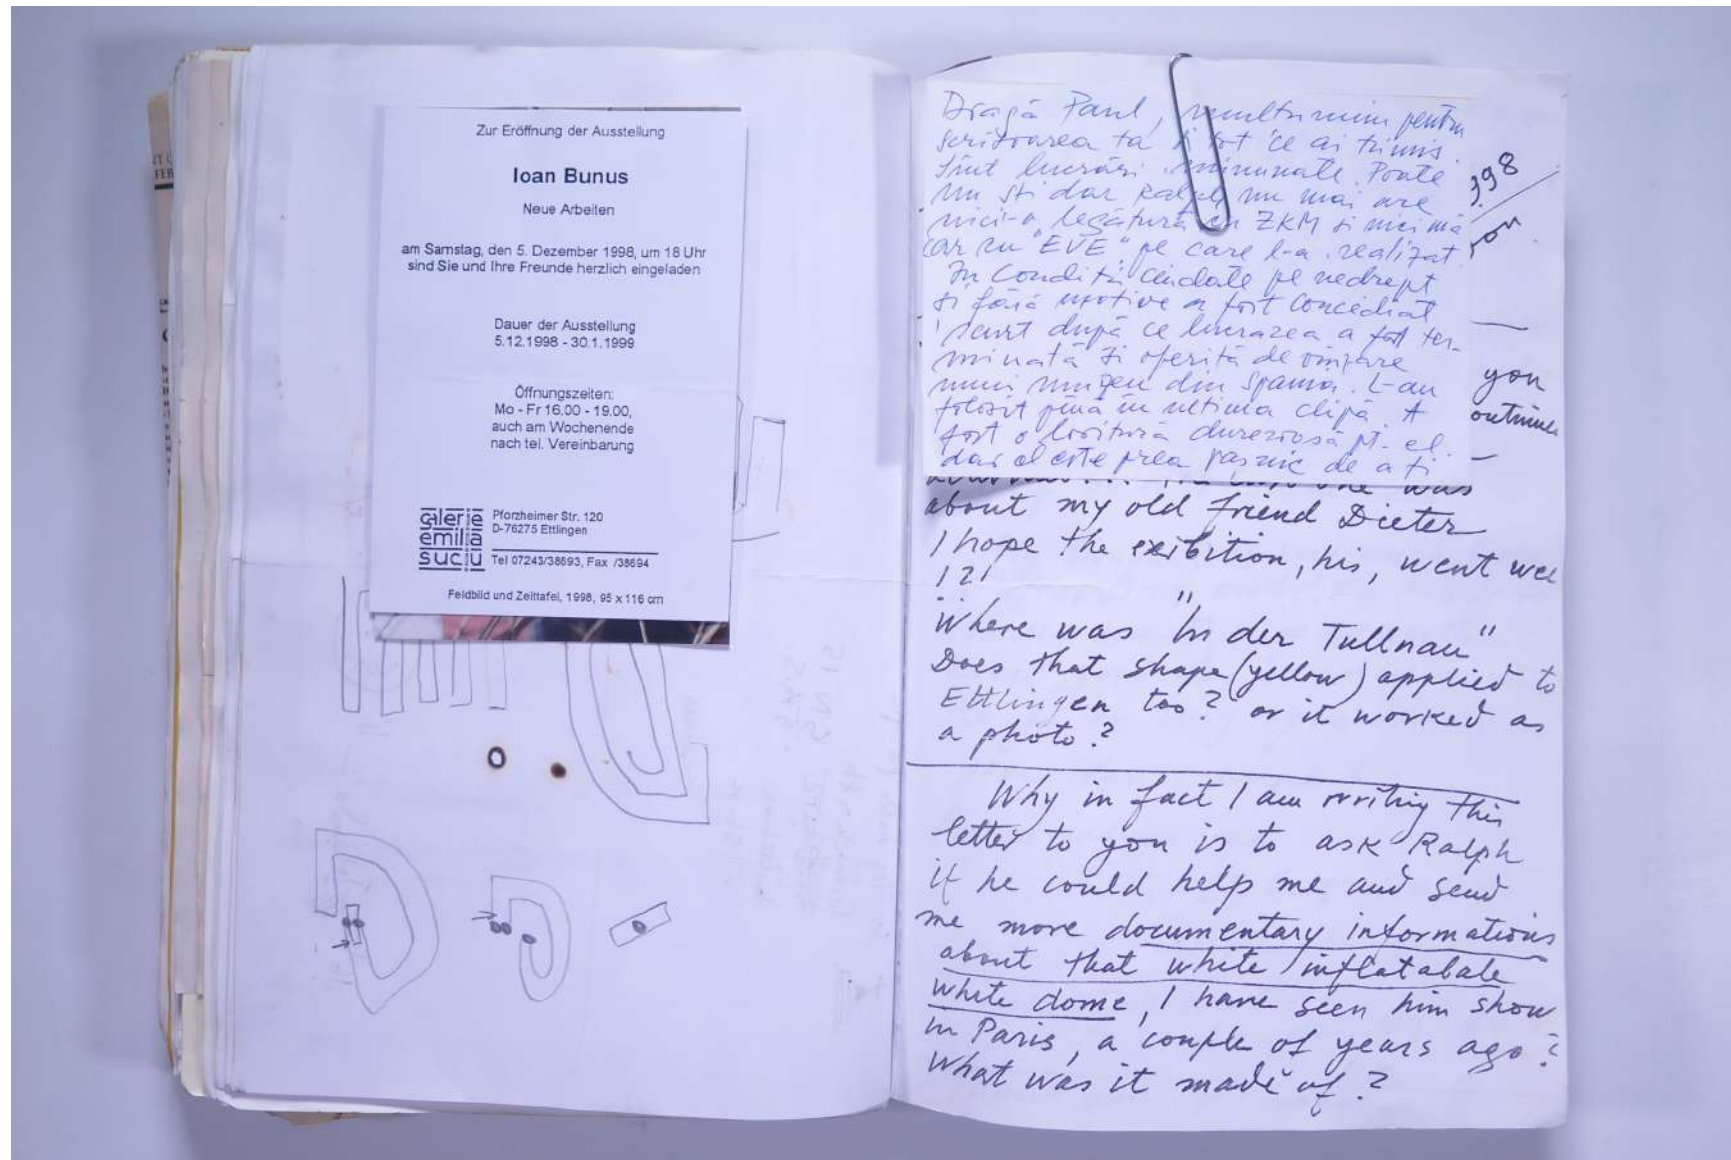 Zur Eröffnung der Ausstellung
Ioan Bunus
Neue Arbeiten
am Samstag, den 5. Dezember 1998, um 18 Uhr
sind Sie und Ihre Freunde herzlich eingeladen
Dauer der Ausstellung
5.12.1998 - 30.1.1999
Öffnungszeiten:
Mo - Fr 16.00 - 19.00,
auch am Wochenende
nach tel. Vereinbarung
galerie
emilia
suciu
Pforzheimer Str. 120
D-76275 Ettlingen
Tel 07243/38693, Fax /38694
Feldbild und Zeittafel, 1998, 95 x 116 cm
Dragă Paul, multumim pentru
scrisoarea ta si tot ce ai trimis.
Sînt lucrări minunate. Poate
nu sti dar Ralph nu mai are
nici-o legătură cu ZKM si nici mă
car cu "EVE" pe care l-a realizat.
In conditii ciudate pe nedrept
si fără motive a fost concediat
scurt după ce lucrarea a fost ter-
minată si oferită de
unui muzeu din Spania. L-au
folosit pînă in ultima clipă. A
fost o lovitură dureroasă pt. el.
dar el este prea pasnic de a fi
398
you
was
about my old friend Dieter
I hope the exibition, his, went wel
!?!
Where was "In der Tullnau"
Does that shape (yellow) applied to
Ettlingen too? or it worked as
a photo?
Why in fact I am writing this
letter to you is to ask Ralph
if he could help me and send
me more documentary informations
about that white inflatabale
white dome, I have seen him show
in Paris, a couple of years ago?
What was it made of?